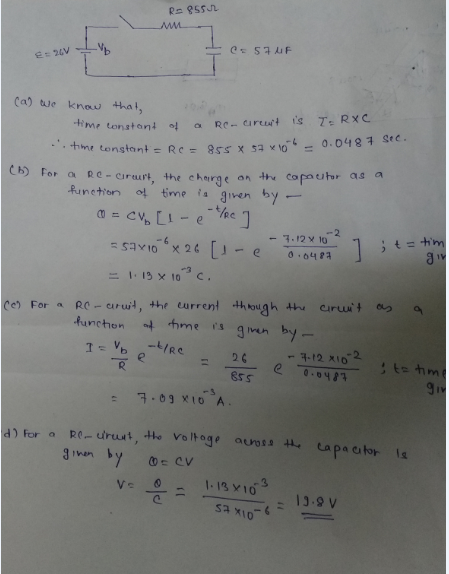 R= 855Ω
E= 26V
Vb
C= 57 μF
(a) We know that,
time constant of a RC-circuit is T= R×C
∴ time constant = RC = 855 × 57 ×10^-6 = 0.0487 sec.
(b) For a RC-circuit, the charge on the capacitor as a
function of time is given by —
Q = CVb [1 - e^-t/RC]
= 57×10^-6 × 26 [1 - e^(- 7.12×10^-2 / 0.0487)] ; t = tim
giv
= 1.13 × 10^-3 C.
(c) For a RC-circuit, the current through the circuit as a
function of time is given by —
I = Vb/R e^-t/RC = 26/855 e^(- 7.12 ×10^-2 / 0.0487) ; t= time
giv
= 7.09 ×10^-3 A.
d) For a RC-circuit, the voltage across the capacitor is
given by Q= CV
V= Q/C = 1.13×10^-3 / 57×10^-6 = 19.8 V